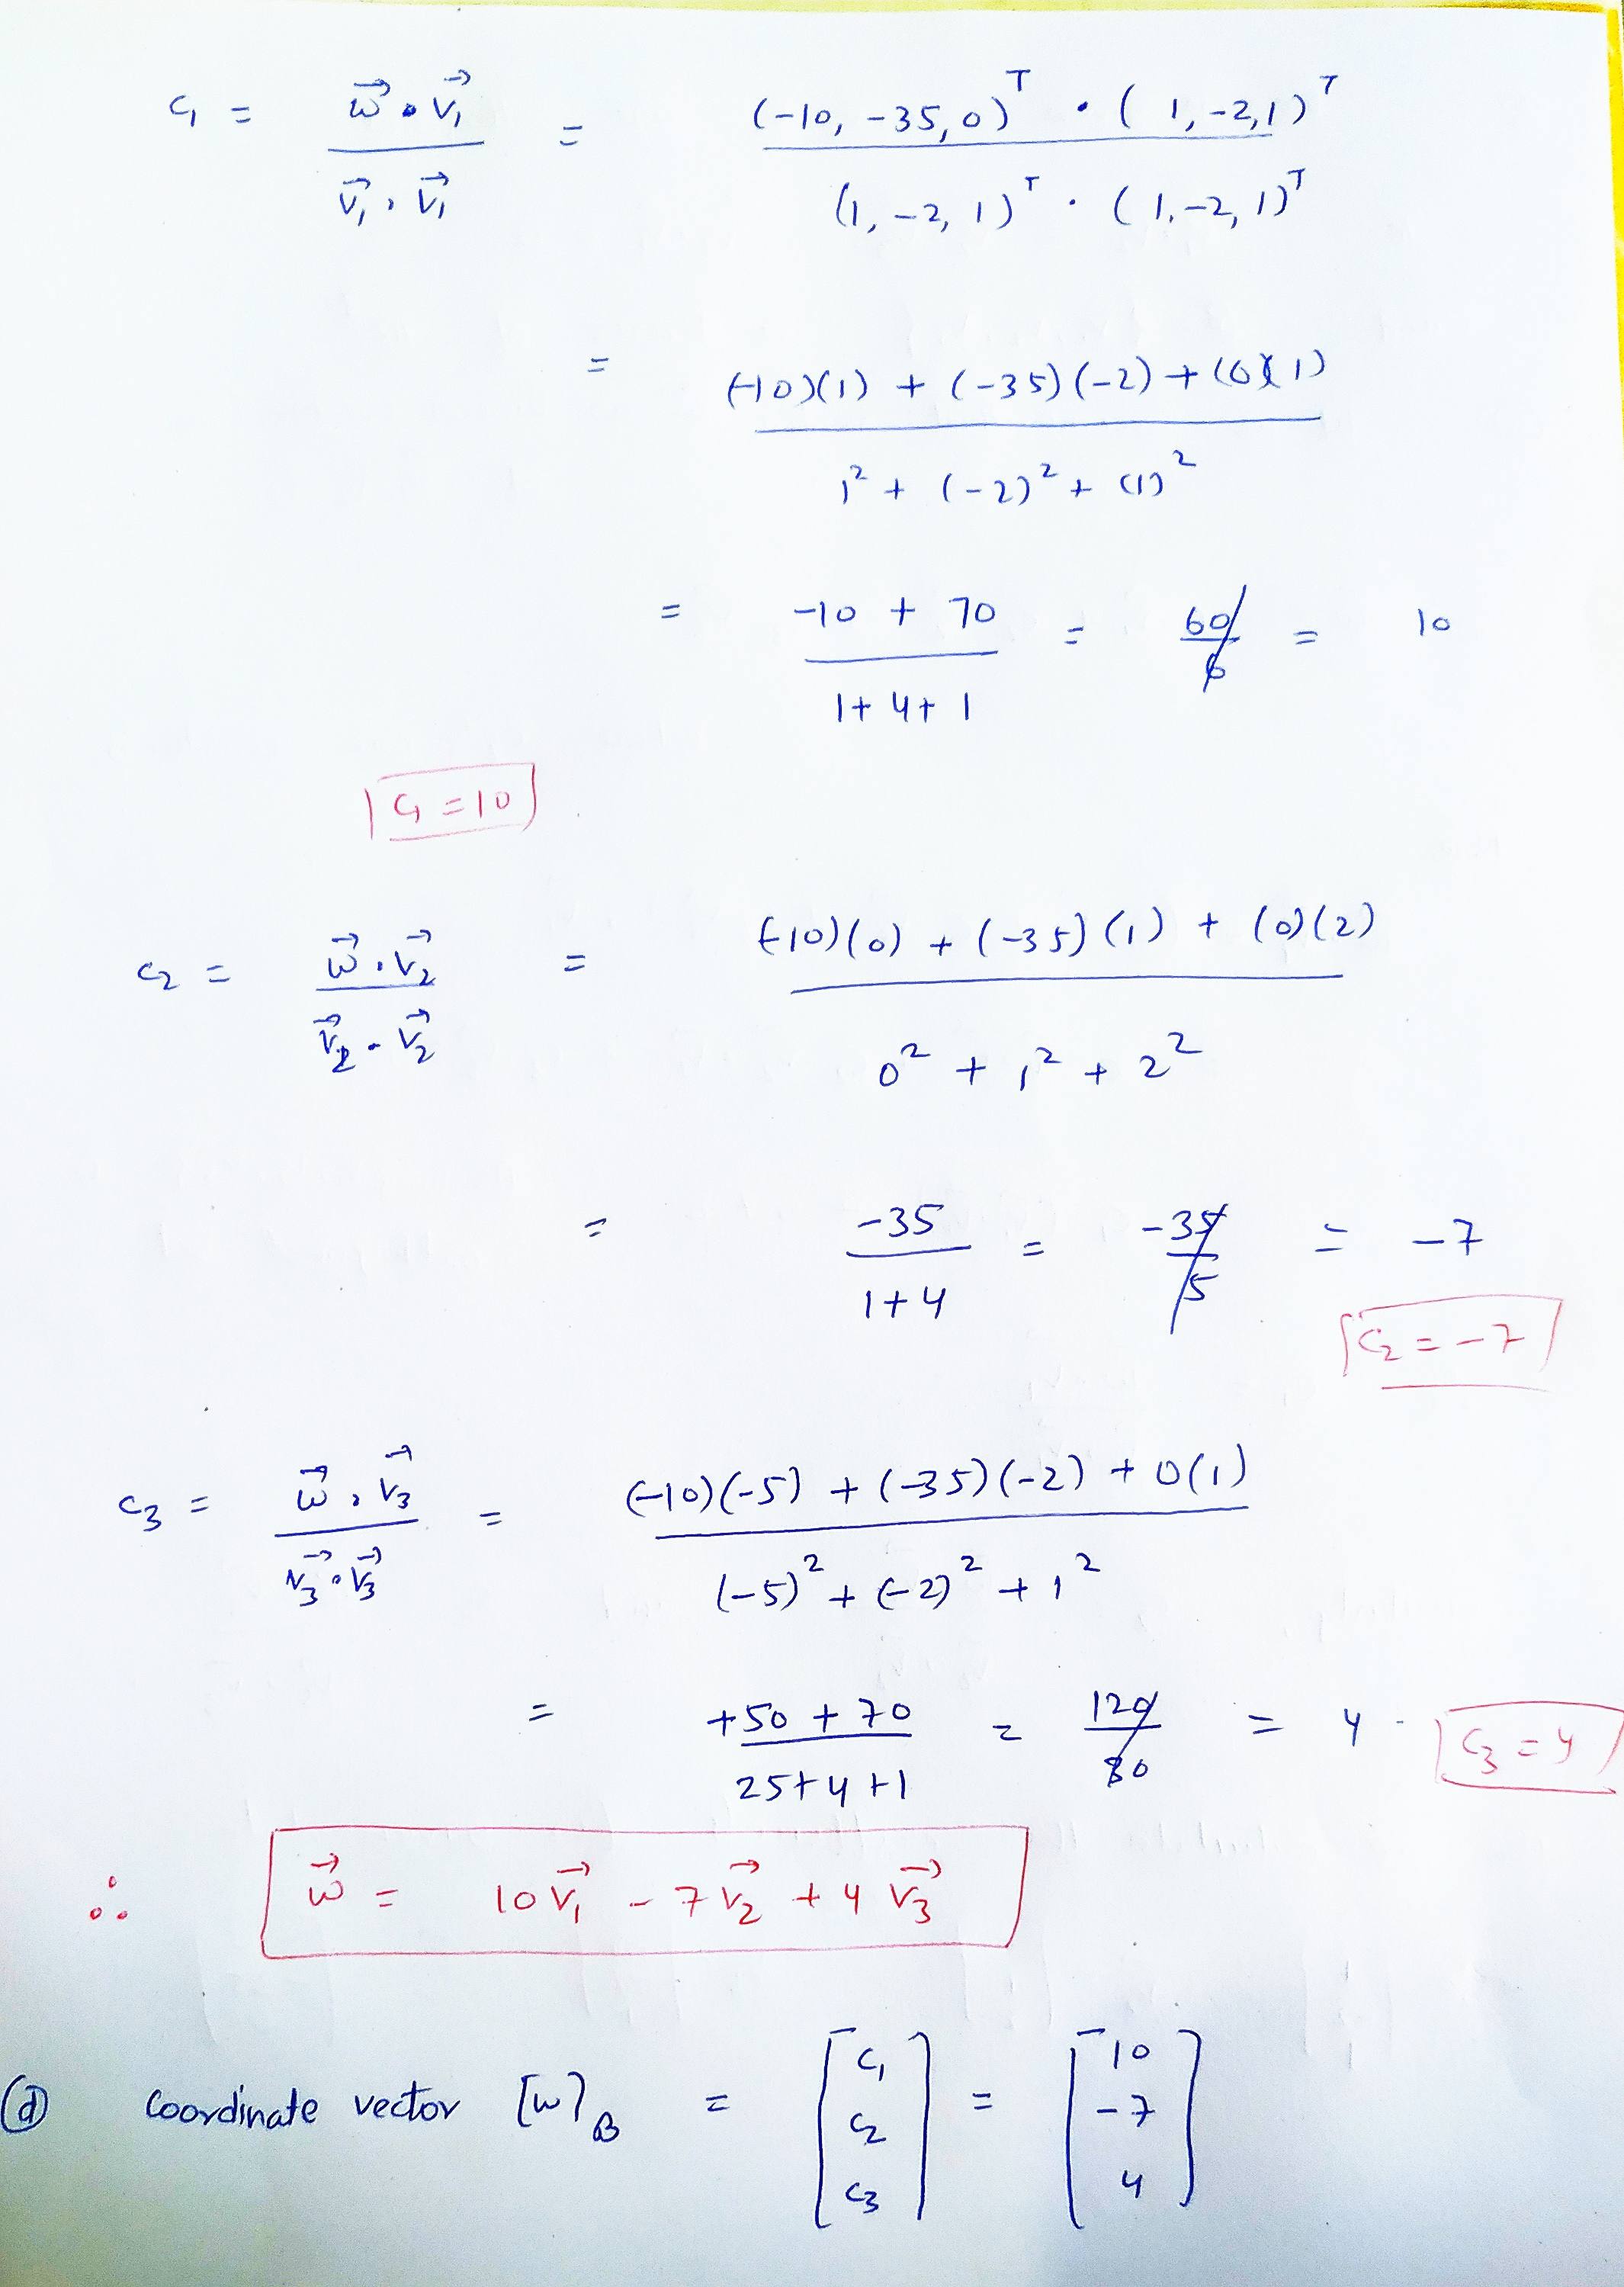 c₁ = (w⃗ · v⃗₁)/(v⃗₁ · v⃗₁) = ((-10, -35, 0)ᵀ · (1, -2, 1)ᵀ)/((1, -2, 1)ᵀ · (1, -2, 1)ᵀ)
= ((-10)(1) + (-35)(-2) + (0)(1))/(1² + (-2)² + (1)²)
= (-10 + 70)/(1 + 4 + 1) = 60/6 = 10
c₁ = 10
c₂ = (w⃗ · v⃗₂)/(v⃗₂ · v⃗₂) = ((-10)(0) + (-35)(1) + (0)(2))/(0² + 1² + 2²)
= -35/(1+4) = -35/5 = -7
c₂ = -7
c₃ = (w⃗ · v⃗₃)/(v⃗₃ · v⃗₃) = ((-10)(-5) + (-35)(-2) + 0(1))/((-5)² + (-2)² + 1²)
= (+50 + 70)/(25+4+1) = 120/30 = 4
c₃ = 4
∴ w⃗ = 10v⃗₁ - 7v⃗₂ + 4v⃗₃
(d) Coordinate vector [w]_B = [c₁ c₂ c₃] = [10 -7 4]